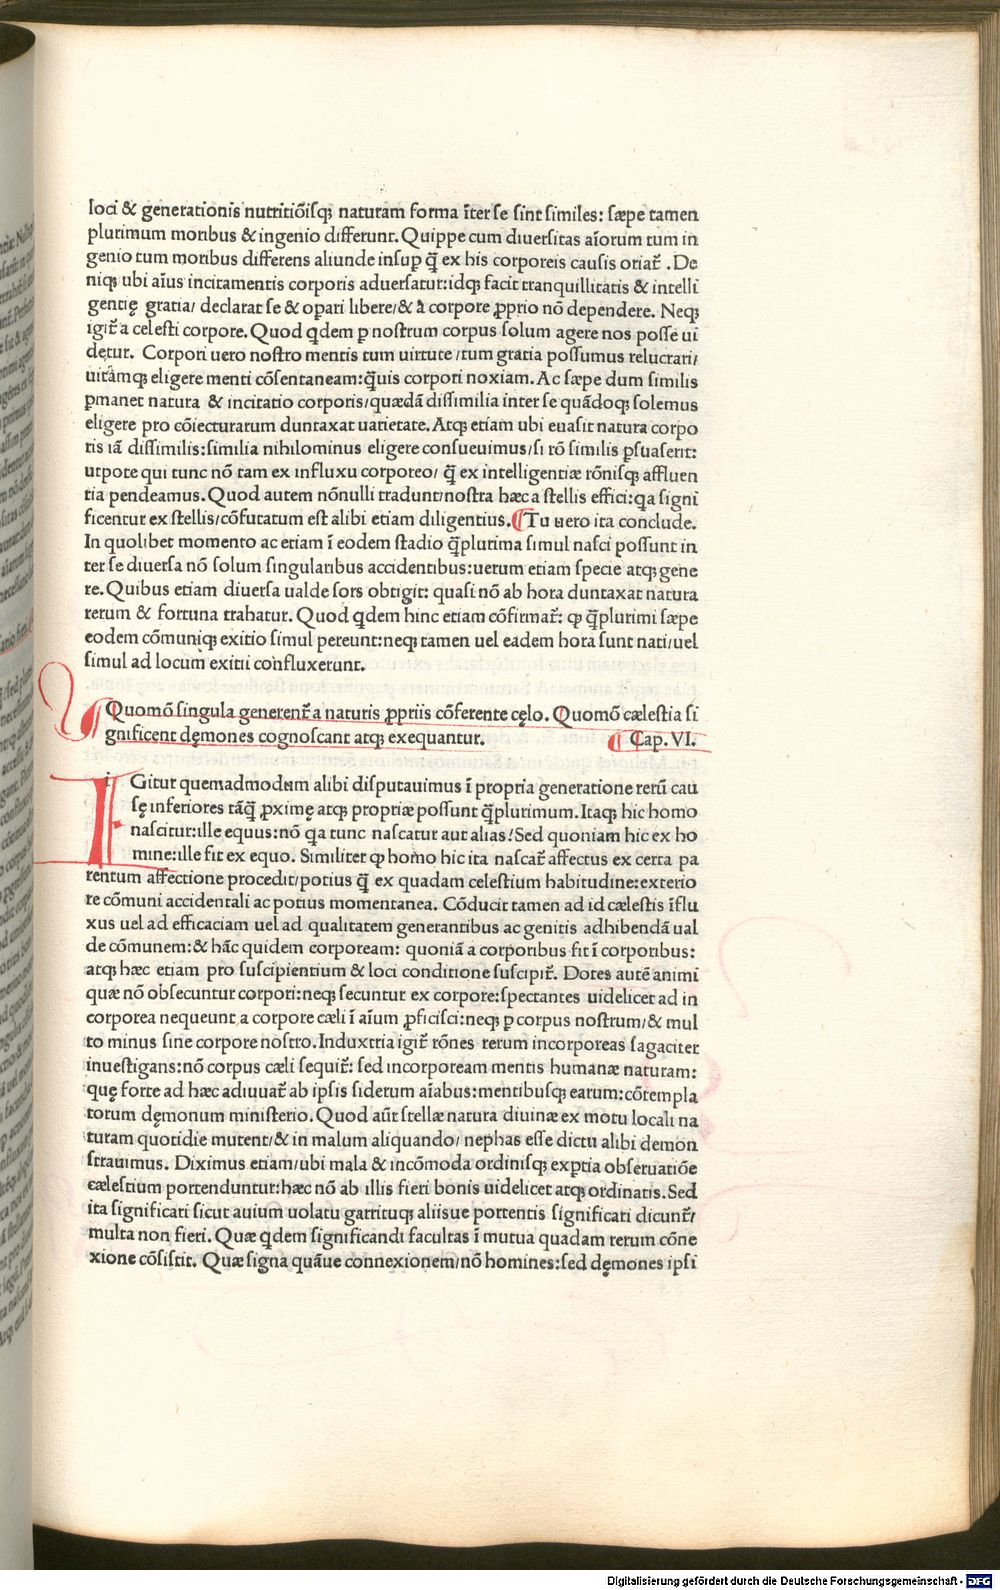 loci & generationis nutritiõisq; naturam forma ĩter se sint similes: sæpe tamen
plurimum moribus & ingenio differunt. Quippe cum diuersitas aĩorum tum in
genio tum moribus differens aliunde insuꝑ q̃ ex his corporeis causis oriat̃ .De
niq; ubi aĩus incitamentis corporis aduersatur:idq; facit tranquillitatis & intelli
gentię gratia/ declarat se & oꝑari libere/& à corpore ꝓprio nõ dependere. Neq;
igit̃ a celesti corpore. Quod qdem ꝑ nostrum corpus solum agere nos posse ui
detur. Corpori uero nostro mentis tum uirtute/tum gratia possumus reluctari/
uitamq; eligere menti cõsentaneam:q̃uis corpori noxiam. Ac sæpe dum similis
ꝑmanet natura & incitatio corporis/quædã dissimilia inter se quãdoq; solemus
eligere pro cõiecturarum duntaxat uarietate. Atq; etiam ubi euasit natura corpo
ris iã dissimilis:similia nihilominus eligere consueuimus/si rõ similis ꝑsuaserit:
utpote qui tunc nõ tam ex influxu corporeo/ q̃ ex intelligentiæ rõnisq; affluen
tia pendeamus. Quod autem nõnulli tradunt/nostra hæc a stellis effici:qa signi
ficentur ex stellis/cõfutatum est alibi etiam diligentius. ¶Tu uero ita conclude.
In quolibet momento ac etiam ĩ eodem stadio q̃plurima simul nasci possunt in
ter se diuersa nõ solum singularibus accidentibus:uerum etiam specie atq; gene
re. Quibus etiam diuersa ualde sors obtigit: quasi nõ ab hora duntaxat natura
rerum & fortuna trahatur. Quod qdem hinc etiam cõfirmat̃: ꝙ q̃plurimi sæpe
eodem cõmuniq; exitio simul pereunt:neq; tamen uel eadem hora sunt nati/uel
simul ad locum exitii confluxerunt.
¶Quomõ singula generent̃ a naturis ꝓpriis cõferente cęlo. Quomõ cælestia si
gnificent dęmones cognoscant atq; exequantur. ¶ Cap. VI.
IGitur quemadmodum alibi disputauimus ĩ propria generatione rerũ cau
sę inferiores tãq̃ ꝓximę atq; propriæ possunt q̃plurimum. Itaq; hic homo
nascitur:ille equus:nõ qa tunc nascatur aut alias! Sed quoniam hic ex ho
mine:ille fit ex equo. Similiter ꝙ homo hic ita nascat̃ affectus ex certa pa
rentum affectione procedit/potius q̃ ex quadam celestium habitudine:exterio
re cõmuni accidentali ac potius momentanea. Cõducit tamen ad id cælestis ĩflu
xus uel ad efficaciam uel ad qualitatem generantibus ac genitis adhibendã ual
de cõmunem:& hãc quidem corpoream: quoniã a corporibus fit ĩ corporibus:
atq; hæc etiam pro suscipientium & loci conditione suscipit̃. Dotes autẽ animi
quæ nõ obsecuntur corpori:neq; secuntur ex corpore:spectantes uidelicet ad in
corporea nequeunt a corpore cæli ĩ aĩum ꝓficisci:neq; ꝑ corpus nostrum/& mul
to minus sine corpore nostro. Induxtria igit̃ rõnes rerum incorporeas sagaciter
inuestigans:nõ corpus cæli sequit̃: sed incorpoream mentis humanæ naturam:
quę forte ad hæc adiuuat̃ ab ipsis siderum aĩabus:mentibusq; earum:cõtempla
torum dęmonum ministerio. Quod aũt stellæ natura diuinæ ex motu locali na
turam quotidie mutent/& in malum aliquando/ nephas esse dictu alibi demon
strauimus. Diximus etiam/ubi mala & incõmoda ordinisq; exꝑtia obseruatiõe
cælestium portenduntur:hæc nõ ab illis fieri bonis uidelicet atq; ordinatis. Sed
ita significari sicut auium uolatu garrituq; aliisue portentis significari dicunt̃/
multa non fieri. Quæ qdem significandi facultas ĩ mutua quadam rerum cõne
xione cõsistit. Quæ signa quãue connexionem/nõ homines:sed dęmones ipsi
Digitalisierung gefördert durch die Deutsche Forschungsgemeinschaft - DFG